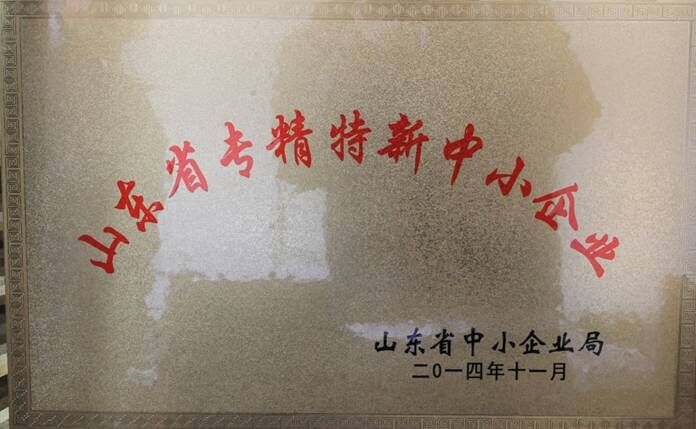 山东省专精特新中小
山东省中小企业局
二0一四年十一月